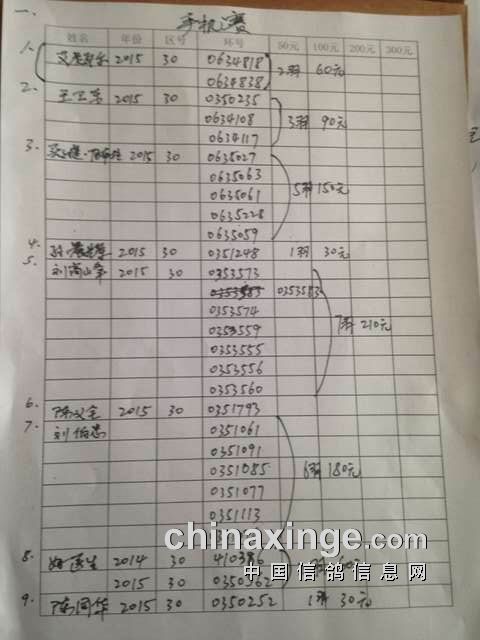 一、 手机赛
姓名 年份 区号 环号 50元 100元 200元 300元
1. 2015 30 0634818
0634838 2羽 60元
2. 2015 30 0350235
0634108 3羽 90元
0634117
3. 2015 30 0635027
0635063
0635061 5羽 150元
0635228
0635059
4. 2015 30 0351248 1羽 30元
5. 刘 2015 30 0353573
0353583 0353583
0353574
0353559 7羽 210元
0353555
0353556
0353560
6. 2015 30 0351793
7. 刘伯忠 0351061
0351091
0351085 6羽 180元
0351077
0351113
8. 2014 410386
2015 30
9. 陈国华 2015 30 0350252 1羽 30元
chinaxinge.com
中国信鸽信息网